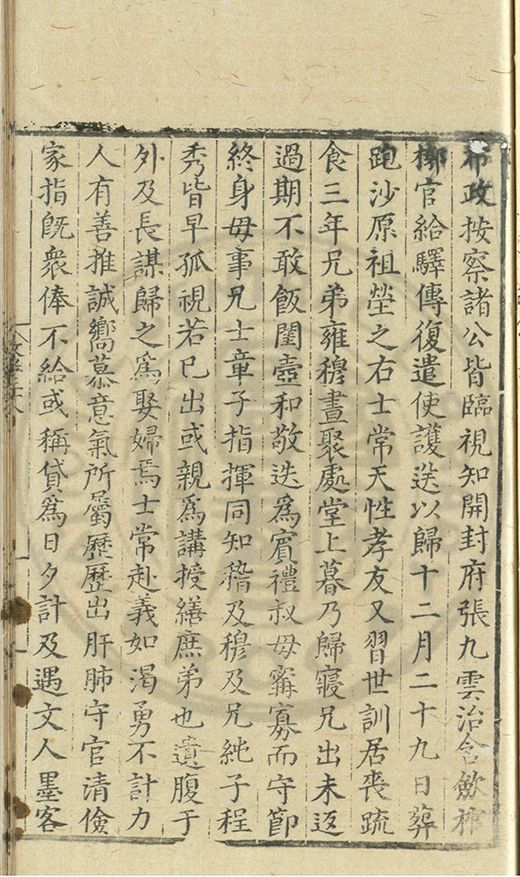 布政按察諸公皆臨視知開封府張九雲治含歛棺
槨官給驛傳復遣使護送以歸十二月二十九日葬
跑沙原祖塋之右士常天性孝友又習世訓居喪疏
食三年兄弟雍穆晝聚處堂上暮乃歸寢兄出未返
過期不敢飯閨壼和敬迭為賓禮叔母寗寡而守節
終身毋事兄士章子指揮同知稽及穆及兄純子程
秀皆早孤視若已出或親為講授繕庶弟也遺腹于
外及長謀歸之為娶婦焉士常赴義如渴勇不計力
人有善推誠嚮慕意氣所屬歷歷出肝肺守官清儉
家指旣衆俸不給或稱貸為日夕計及遇文人墨客